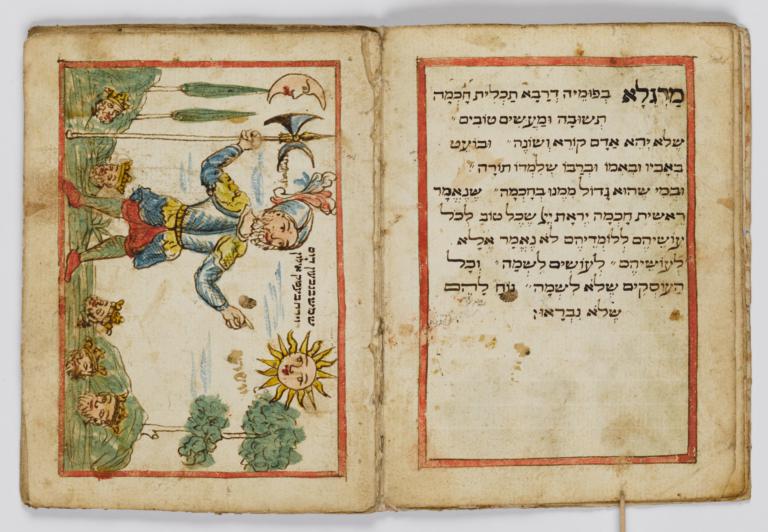 מַרְגְּלָא בְּפוּמֵיהּ דְרָבָא תַּכְלִית חָכְמָה
תְּשׁוּבָה וּמַעֲשִׂים טוֹבִים״
שֶׁלֹּא יְהֵא אָדָם קוֹרֵא וְשׁוֹנֶה״ וּבוֹעֵט
בְּאָבִיו וּבְאִמּוֹ וּבְרַבּוֹ שֶׁלִּמְּדוֹ תּוֹרָה״
וּבְמִי שֶׁהוּא גָּדוֹל מִמֶּנּוּ בְּחָכְמָה״ שֶׁנֶּאֱמַר
רֵאשִׁית חָכְמָה יִרְאַת יְיָ שֵׂכֶל טוֹב לְכָל
עוֹשֵׂיהֶם לְלוֹמְדֵיהֶם לֹא נֶאֱמַר אֶלָּא
לְעוֹשֵׂיהֶם״ לָעוֹשִׂים לִשְׁמָהּ״ וְכָל
הָעוֹסְקִים שֶׁלֹּא לִשְׁמָהּ״ נוֹחַ לָהֶם
שֶׁלֹּא נִבְרָאוּ:
שמש בגבעון דום
וירח בעמק אילון